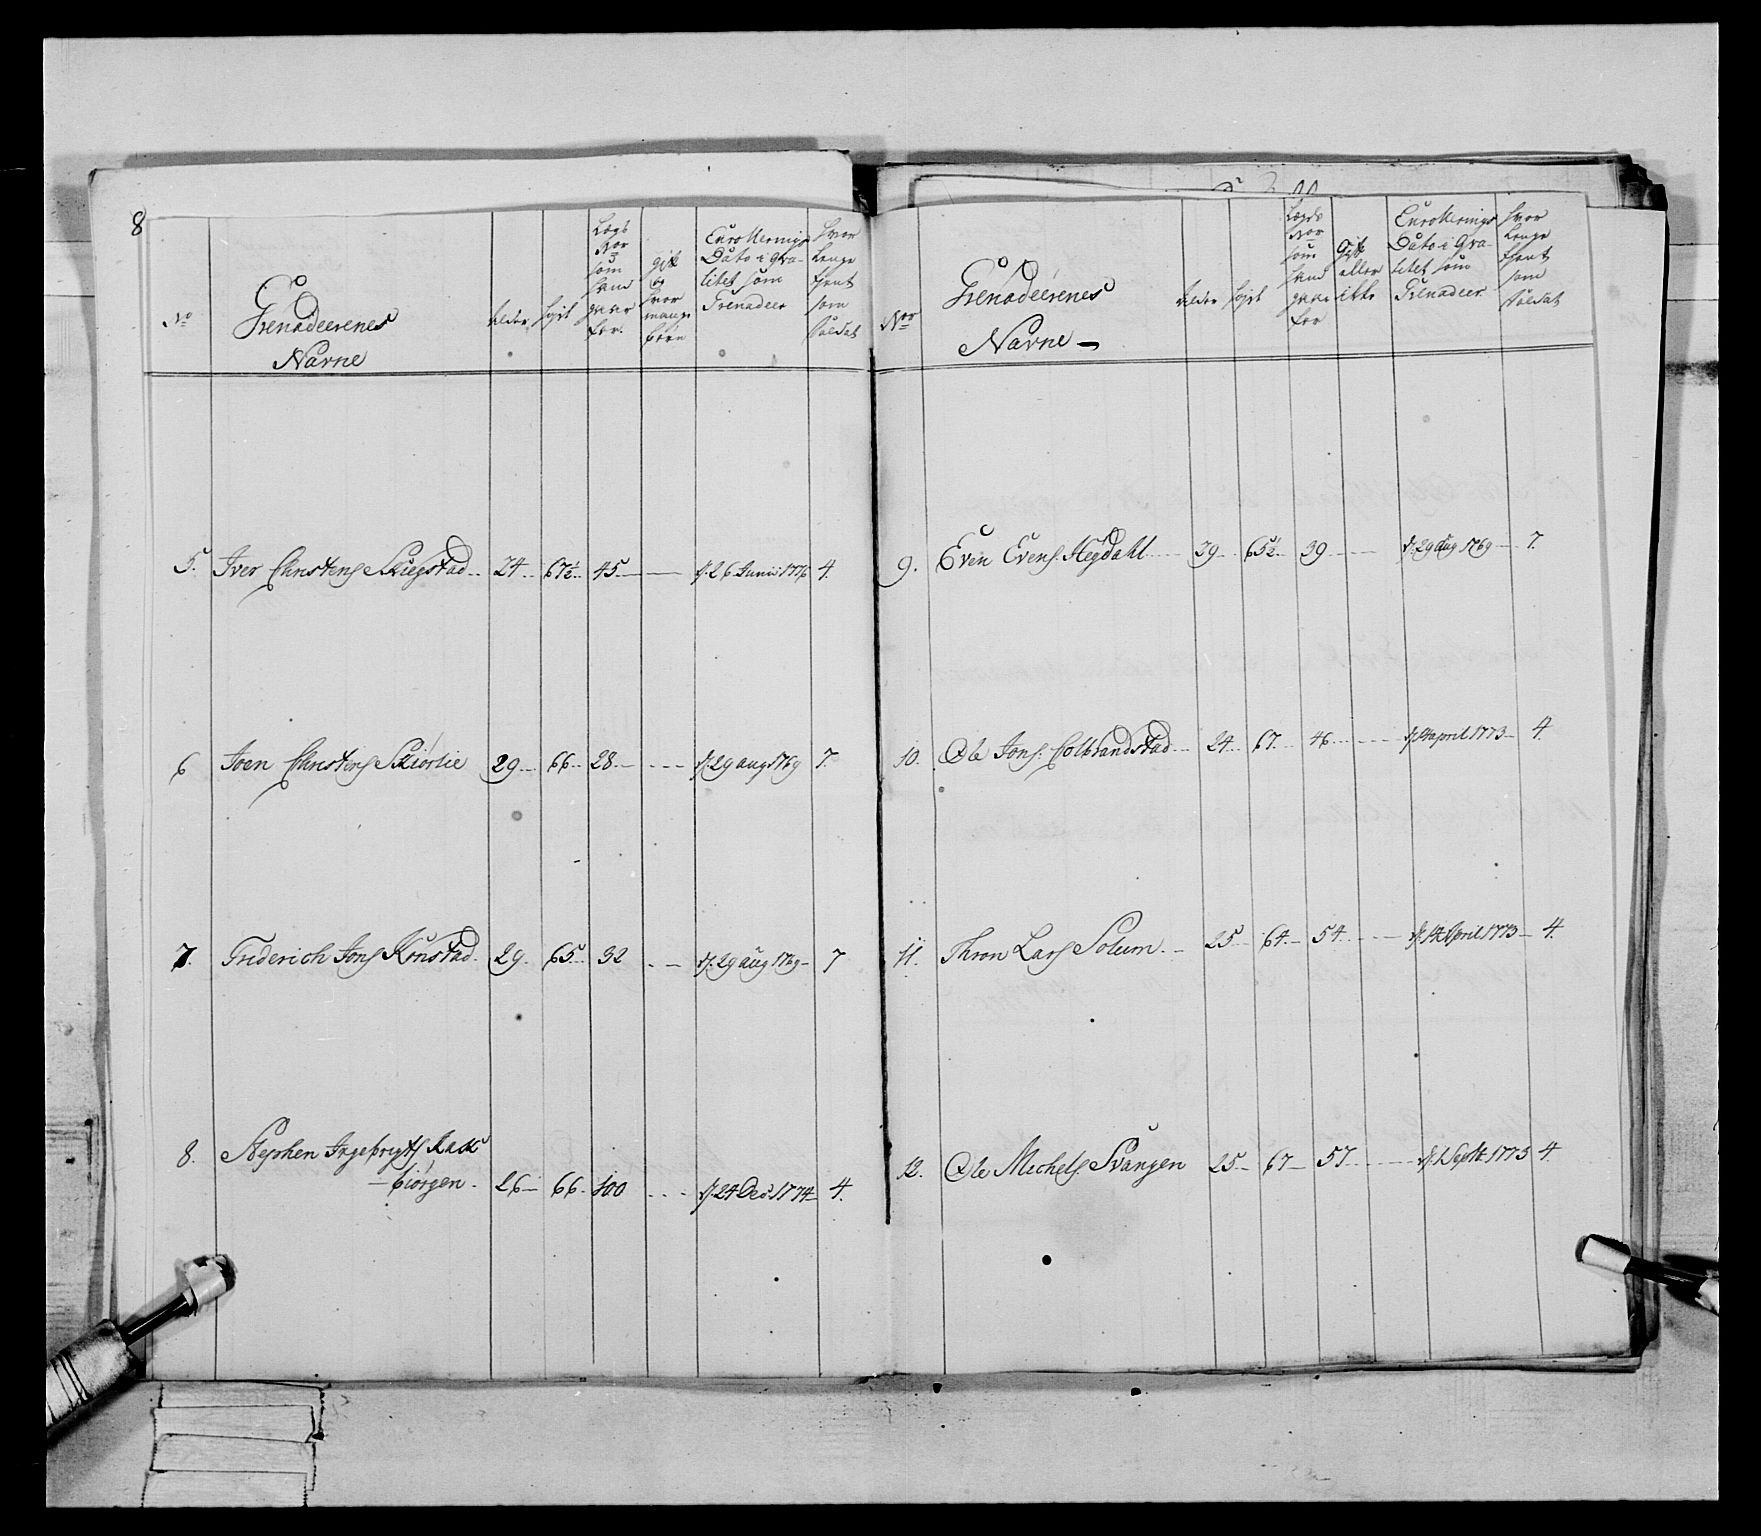 8
No
Grenadeerenes
Navne
alder
høyt
Lægs
Nor
som
hand
staar
for.
gift
og
hvor
mange
børn
Enrollerings
Dato i Qva-
litet som
Grenadeer
hvor
lenge
tient
som
Soldat
5. Iver Christens Skiegstad 24 67½ 45 d. 26 Junii 1776 4.
6 Joen Christens Skiørlie 29 66 28 d. 29 aug 1769 7.
7. Friderich Jons Kønstad 29. 65 32 d. 29 aug 1769 7
8. Stephen Ingebrigts Rak
biørgen. 26 66. 100 d. 24 Decb 1774 4.
Nor
Grenadeerenes
Navne
alder
høyt
Lægds
Nor
som
hand
staar
for
Gift
eller
ikke
Enrollerings
Dato i Qva-
litet som
Grenadeer.
hvor
lenge
tient
som
Soldat
9. Even Evens. Hegdahl 39 65½ 39 d. 29 aug 1769 7.
10. Ole Jons. Colbrandstad 24 67. 46 april 1773 4
11. Thron Lars Solum 25 64 54 d. 14 April 1773 4.
12. Ole Michels Svangen 25 67 57 Septb 1775 4.